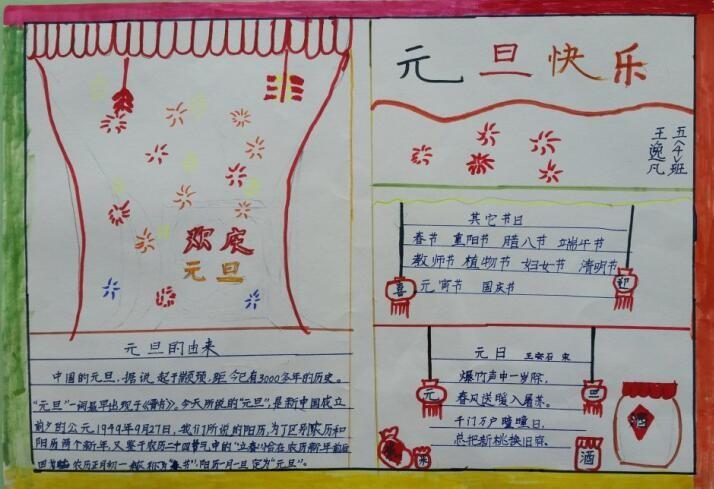 元旦快乐
五<4>班
王逸凡
欢庆
元旦
其它节日
春节 重阳节 腊八节 端午节
教师节 植物节 妇女节 清明节
元宵节 国庆节
喜
迎
元旦的由来
中国的元旦，据说起于颛顼，距今已有3000多年的历史。
"元旦"一词最早出现于《晋书》。今天所说的"元旦"，是新中国成立
前夕的公元1949年9月27日，我们所说的阳历，为了区别农历和
阳历两个新年，又鉴于农历二十四节气中的"立春"恰在农历新年前后
农历正月初一 称为"春节"，阳历一月一日定为"元旦"。
元日 王安石 宋
爆竹声中一岁除，
春风送暖入屠苏。
千门万户曈曈日，
总把新桃换旧符。
元
旦
米
酒
酒